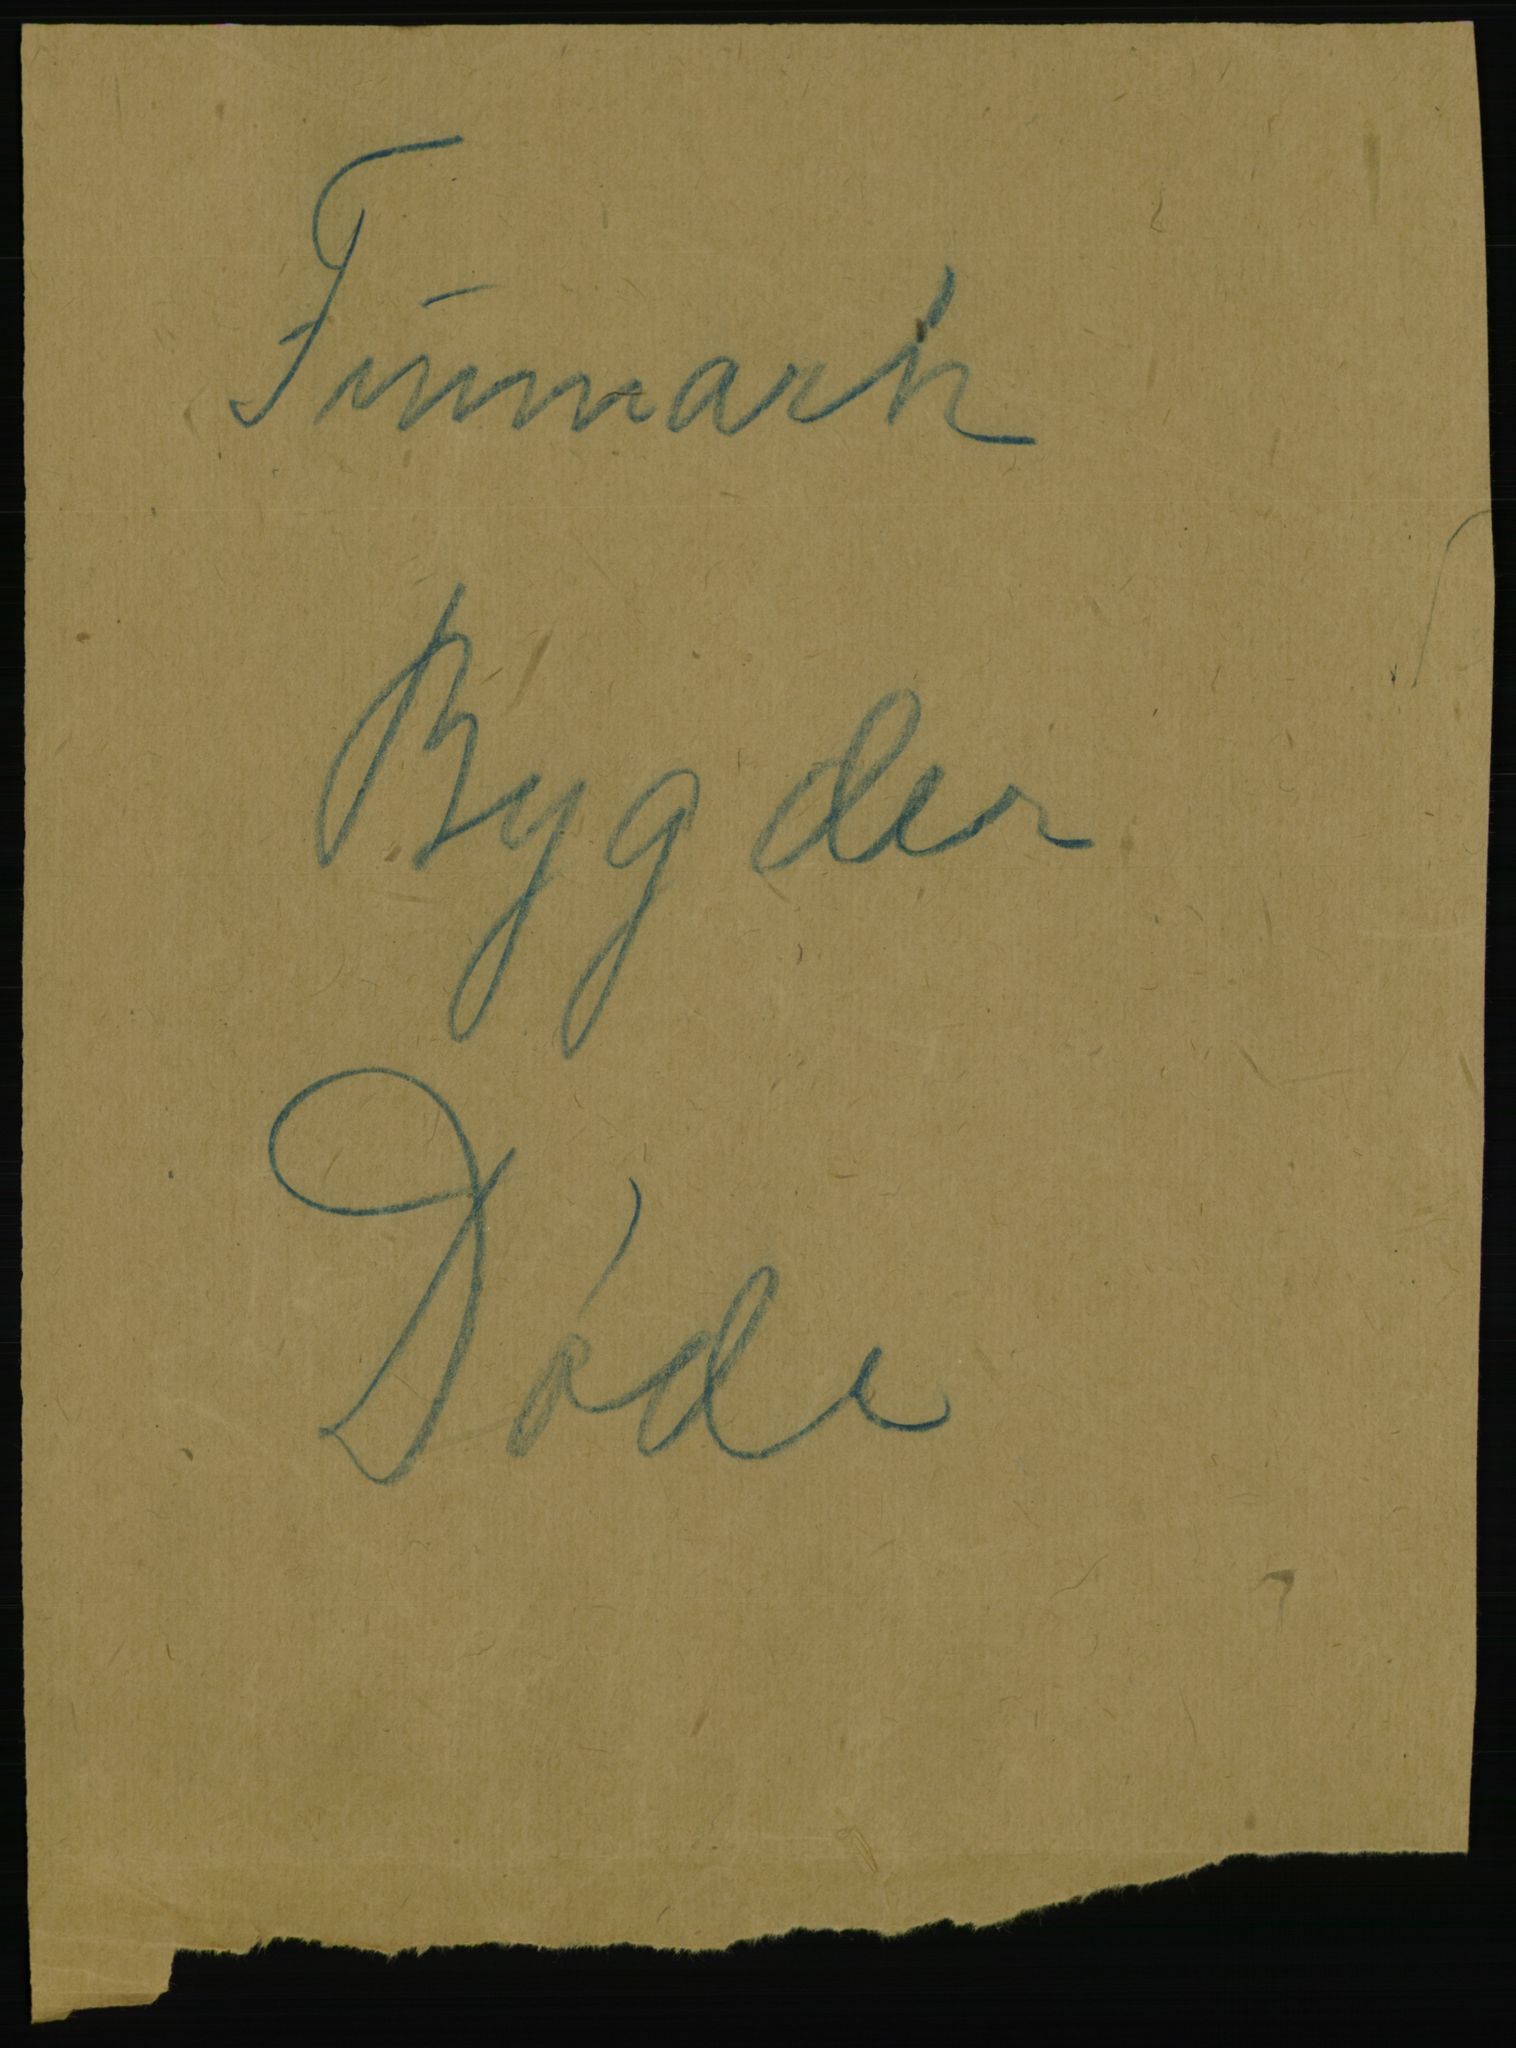 Finmark
Bygder
Døde